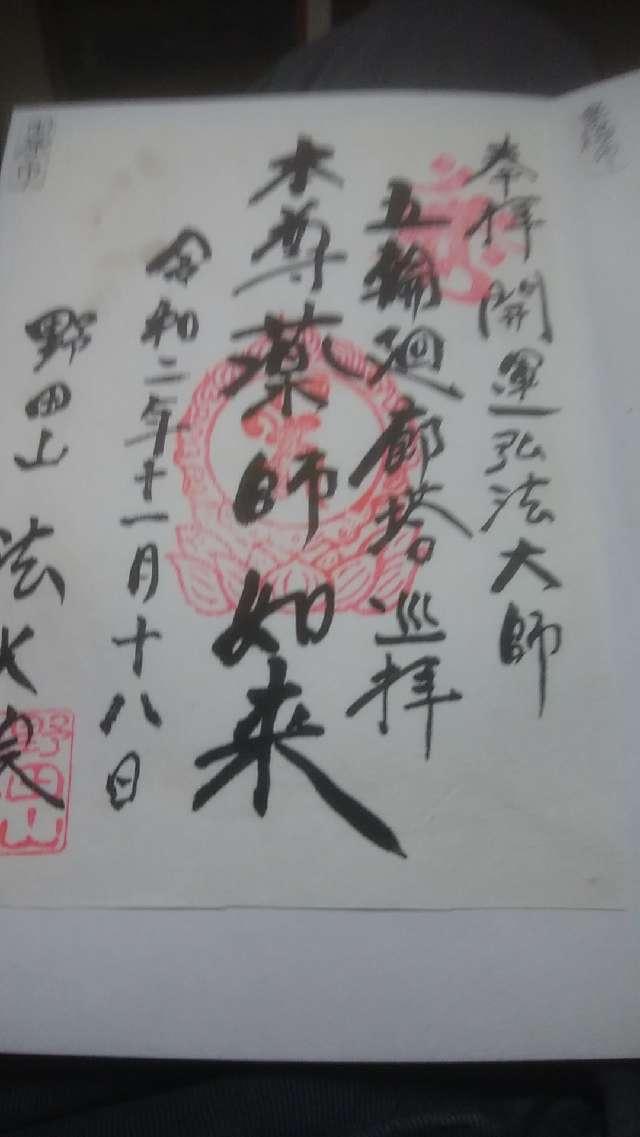 奉拝 開運弘法大師
五輪廻廊塔巡拝
本尊薬師如来
令和二年十一月十八日
野田山 法
野田山